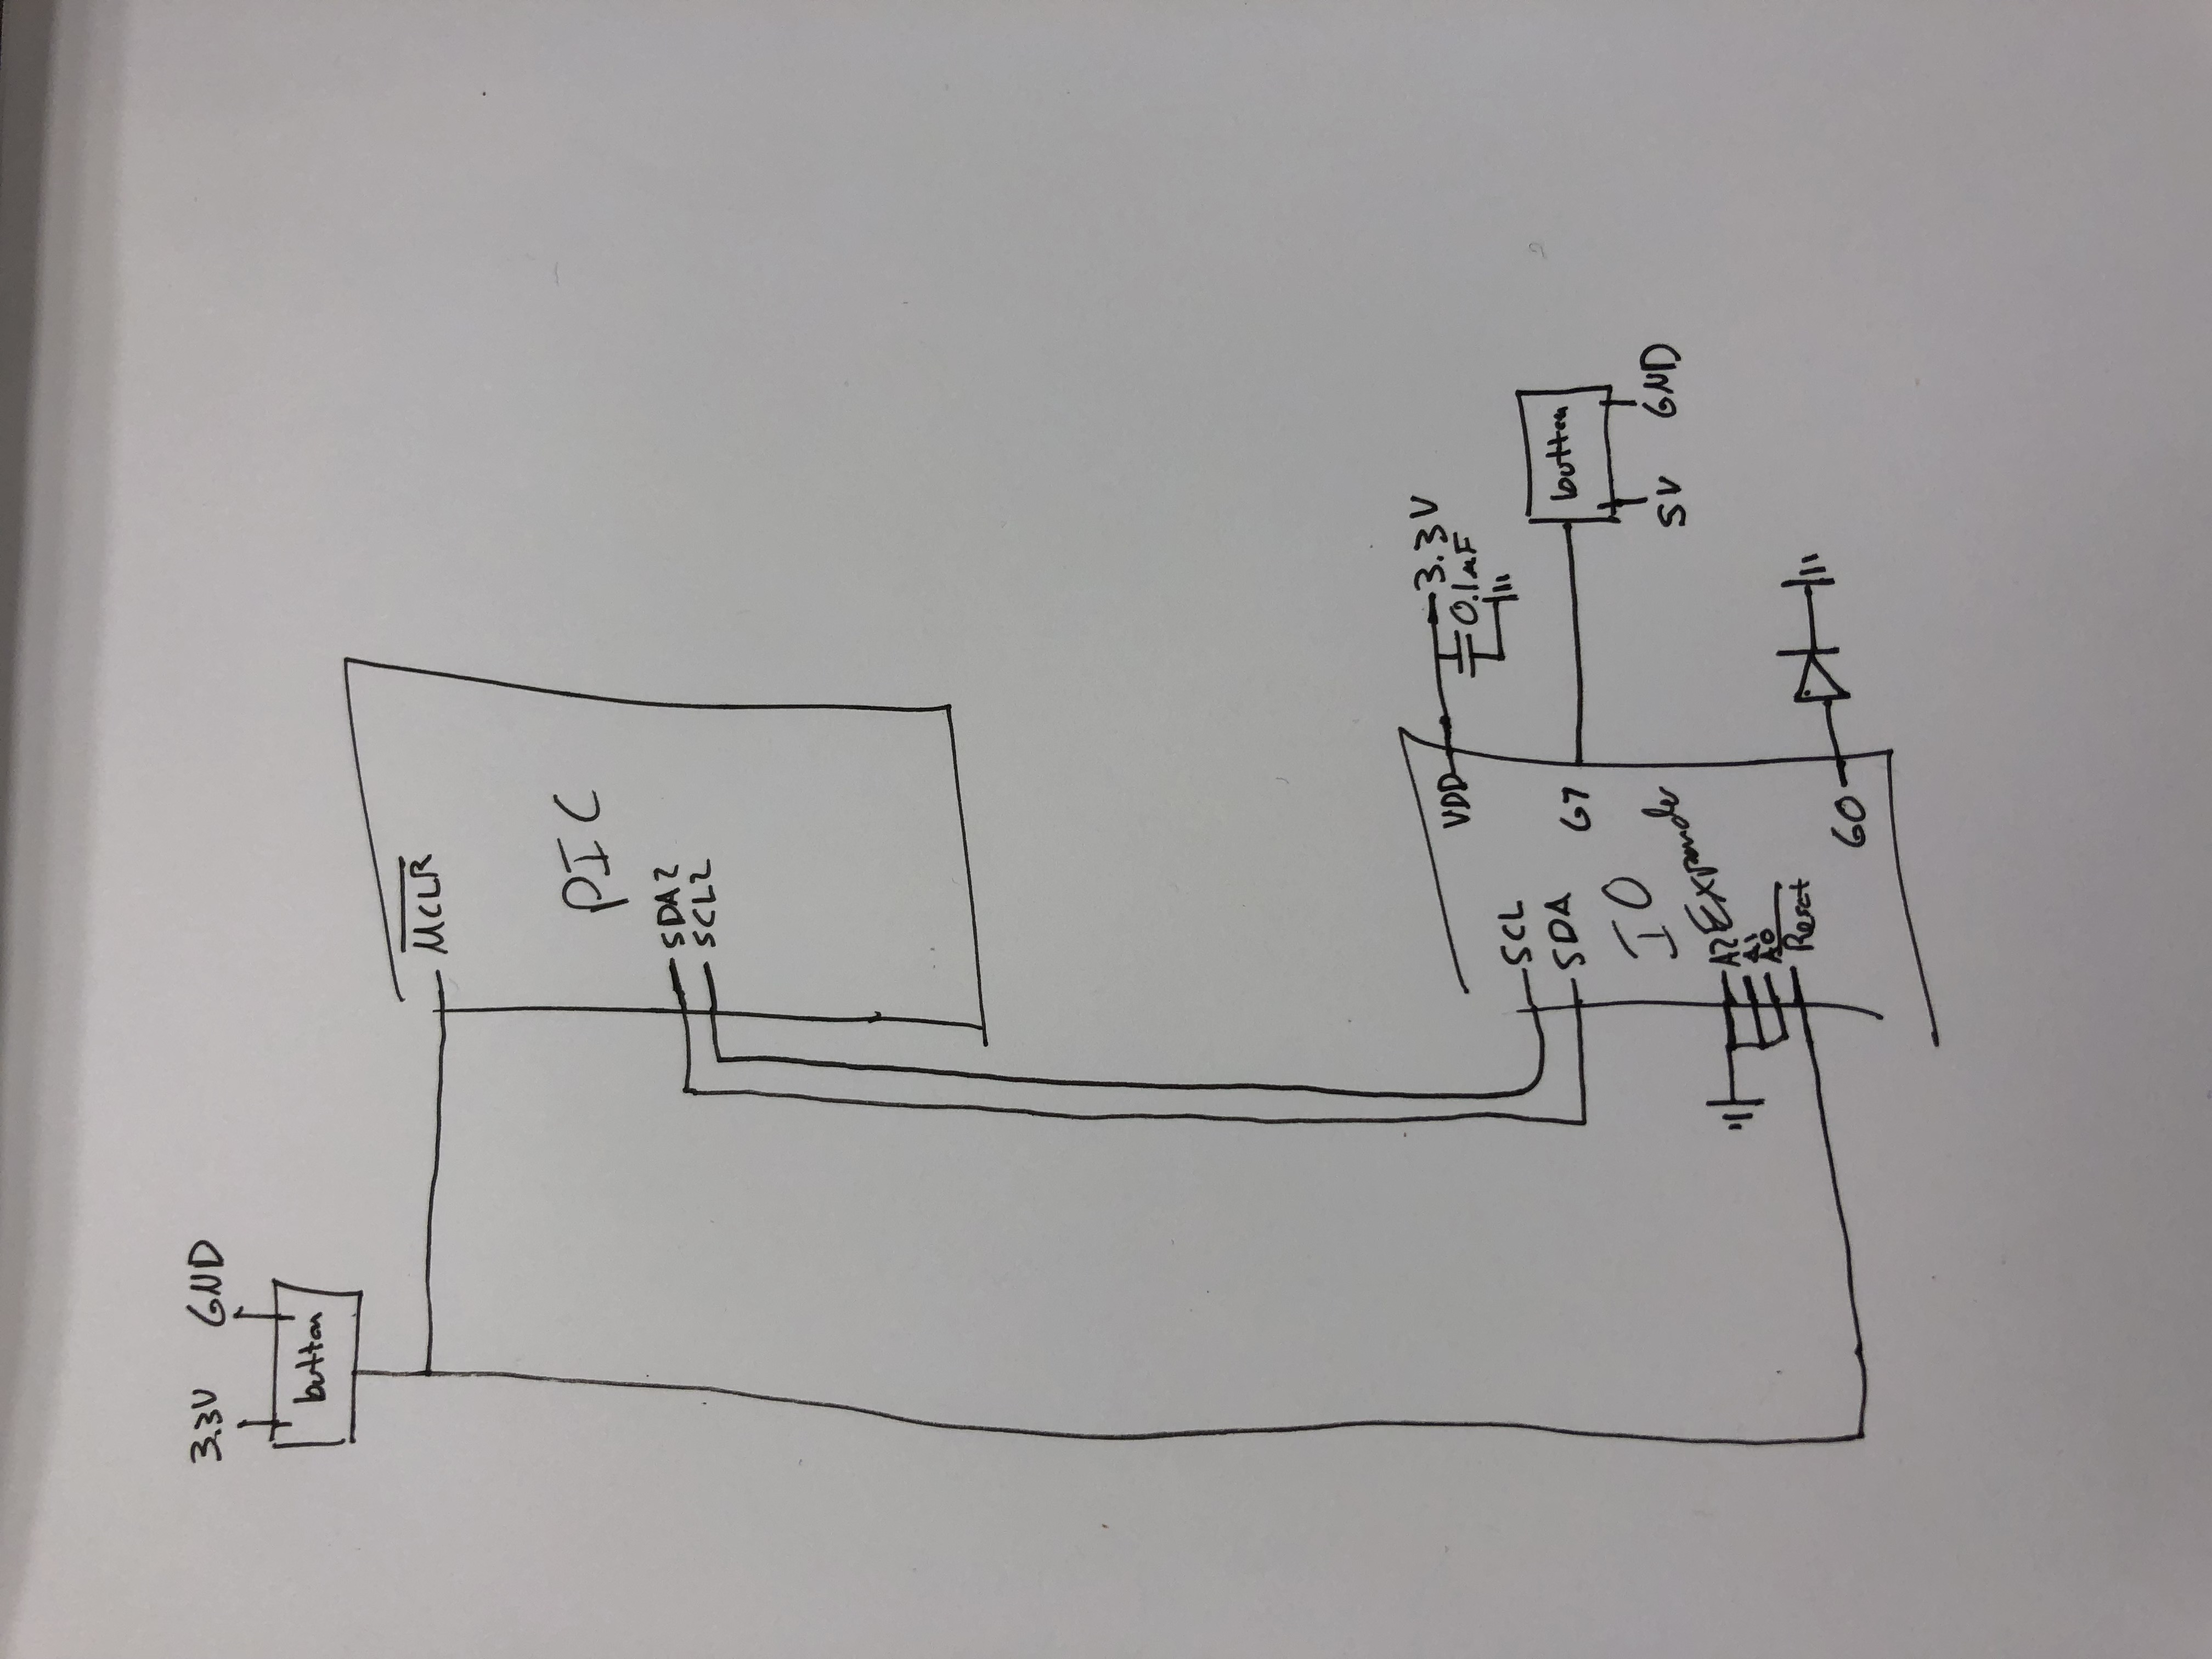 3.3V GND
button
MCLR
PIC
SDA2
SCL2
VDD 3.3V
0.1μF
SCL
SDA
G7
button
5V GND
IO
Expander
A2
A1
A0
Reset
G0